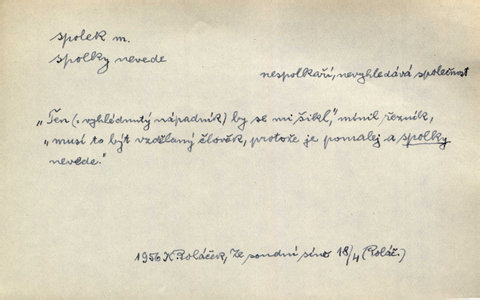 spolek m.
spolky nevede
nespolkaří, nevyhledává společnost
„Ten (: vyhlédnutý nápadník) by se mi šikl", mínil řezník,
„musí to být vzdělaný člověk, protože je pomalej a spolky
nevede."
1956 K. Poláček, Ze soudní síně 18/4 (Poláč.)